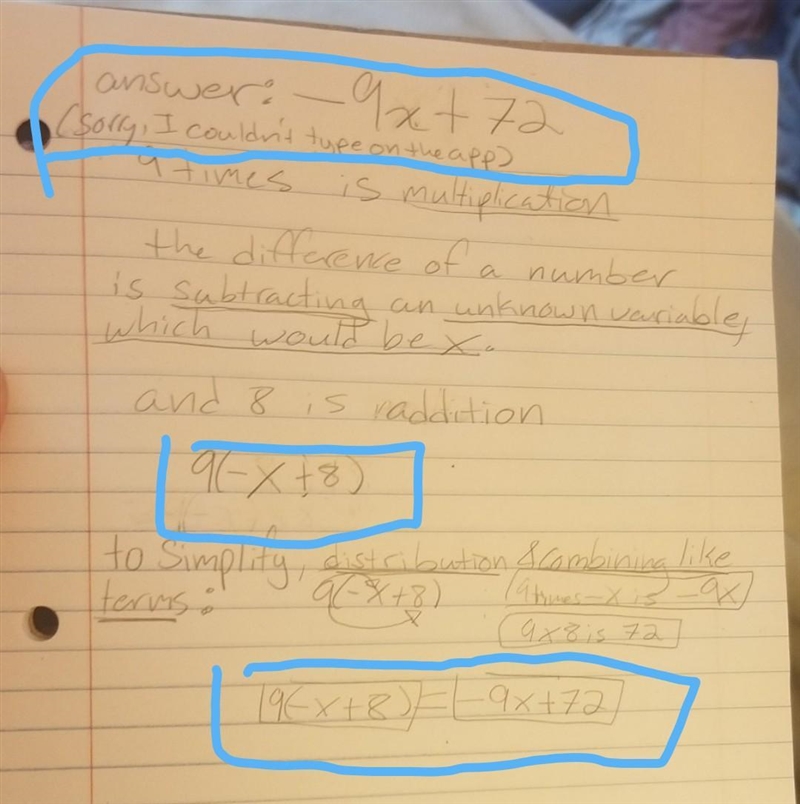 answer: -9x + 72
(sorry, I couldn't type on the app)
9 times is multiplication
the difference of a number
is subtracting an unknown variable,
which would be x.
and 8 is raddition
9(-x+8)
to simplify, distribution & combining like
terms: 9(-x+8) 9 times -x is -9x
9x8 is 72
9(-x+8) = -9x+72